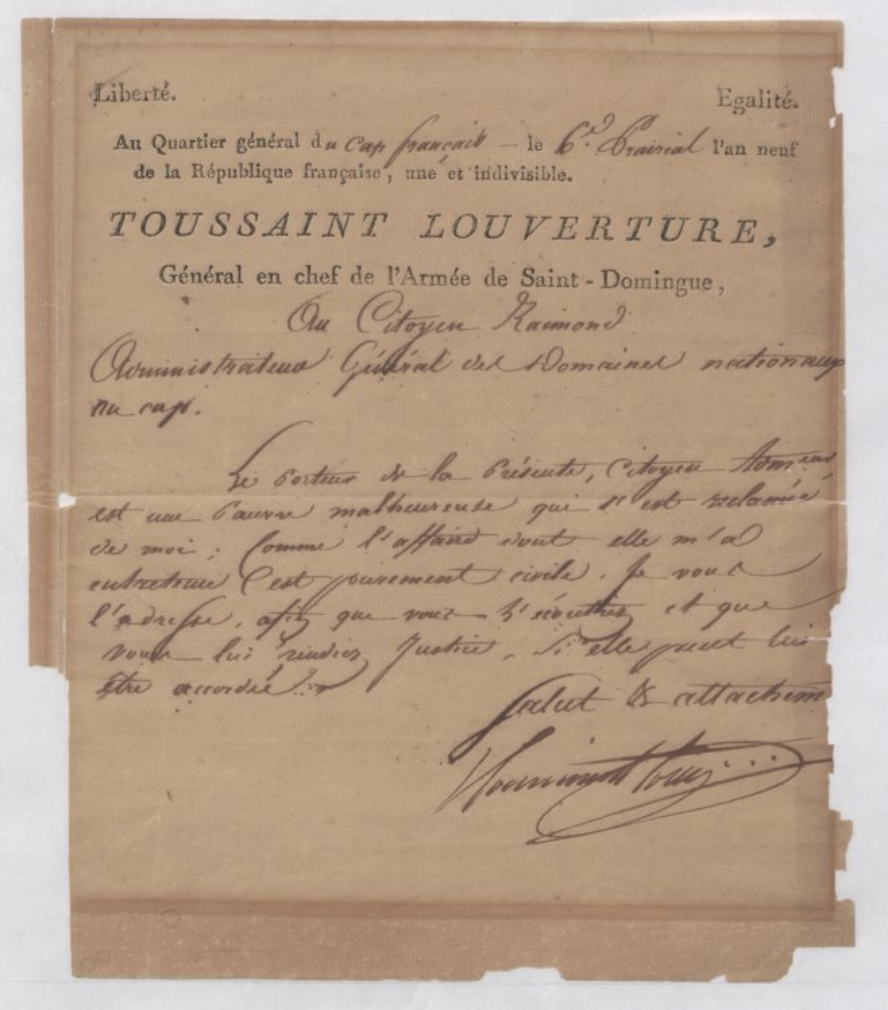 Liberté. Egalité.
Au Quartier général du cap français le 6 Prairial l'an neuf
de la République française, une et indivisible.
TOUSSAINT LOUVERTURE,
Général en chef de l'Armée de Saint-Domingue,
Au Citoyen Raimond
Administrateur Général des Domaines nationaux
au cap.
Le Porteur de la Présente, Citoyen
est une Pauvre malheureuse qui s'est reclamée
de moi; Comme l'affaire dont elle m'a
entretenue c'est purement civile. Je vous
l'adresse, afin que vous l'écoutiez et que
vous lui rendiez Justice, Si elle peut lui
être accordée.
Salut & attachem
Toussaint Louverture